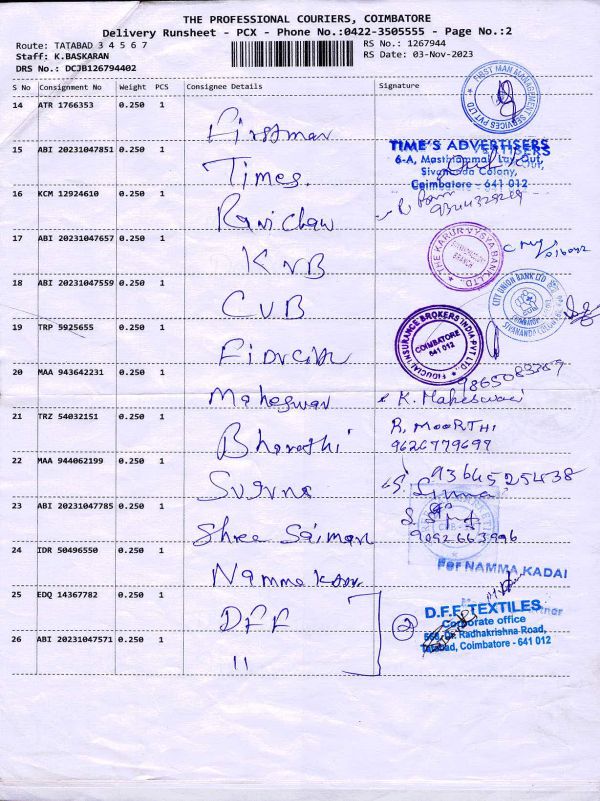 THE PROFESSIONAL COURIERS, COIMBATORE
Delivery Runsheet - PCX - Phone No.:0422-3505555 - Page No.:2
Route: TATABAD 3 4 5 6 7
RS No.: 1267944
Staff: K.BASKARAN
RS Date: 03-Nov-2023
DRS No.: DCJB126794402
S No Consignment No Weight PCS Consignee Details Signature
14 ATR 1766353 0.250 1 Firstman
FIRST MAN MANAGEMENT SERVICES PVT LTD
15 ABI 20231047851 0.250 1 Times.
TIME'S ADVERTISERS
6-A, Mastriammal Lay Out,
Sivananda Colony,
Coimbatore - 641 012
16 KCM 12924610 0.250 1 Ravichan
17 ABI 20231047657 0.250 1 KVB
THE KARUR VYSYA BANK LTD.
BRANCH
18 ABI 20231047559 0.250 1 CUB
CITY UNION BANK LTD
19 TRP 5925655 0.250 1
FIDUCIAL INSURANCE BROKERS INDIA PVT LTD.
COIMBATORE
641 012
20 MAA 943642231 0.250 1 Maheswar
K. Maheswari
21 TRZ 54032151 0.250 1 Bharathi
R. MOORTHI
9626779697
22 MAA 944062199 0.250 1 Suguna
23 ABI 20231047785 0.250 1 Shree Saiman
9092663996
24 IDR 50496550 0.250 1
For NAMMA KADAI
25 EDQ 14367782 0.250 1 DFF
2
D.F.F. TEXTILES
Corporate office
Dr. Radhakrishna Road,
Tatabad, Coimbatore - 641 012
26 ABI 20231047571 0.250 1 "